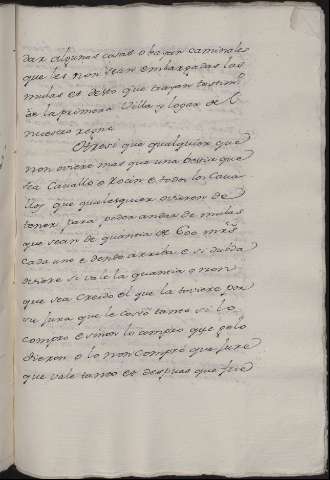 dar algunas cosas o bayan caminales
que les non sean embargadas las
mulas e desto que trayan testimº
de la primera Villa y logar de
nuestro reyno
Otrosi que qualquier que
non oviere mas que una bestia que
sea Cavallo o Rocin e todos los Cava
llos que qualesquier ovieren de
tener para poder andar de mulas
que sean de quantia de 600 mrs
cada uno e dende arriba e si dubda
oviere si vale la quantia o non
que sea creido el que la toviere por
su jura que le costó tanto si lo
compro e si non lo compro que gelo
dieron o lo non compró que jure
que vale tanto e despues que fue